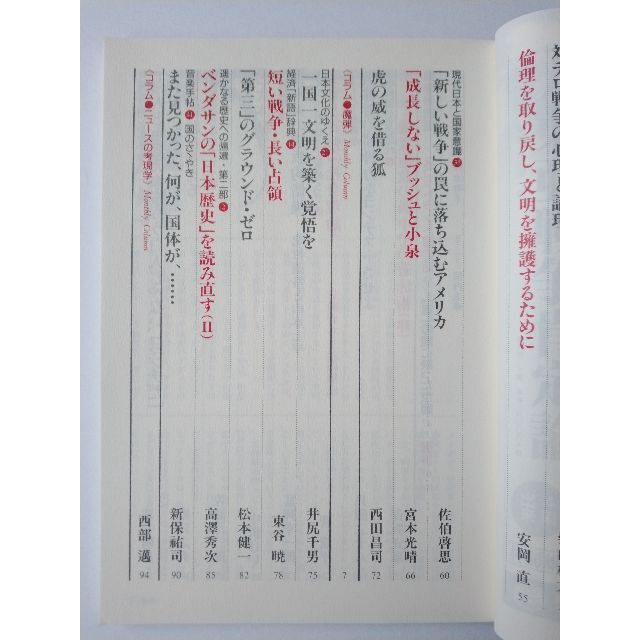 倫理を取り戻し、文明を擁護するために
安岡 直 55
現代日本と国家意識
「新しい戦争」の罠に落ち込むアメリカ
佐伯啓思 60
「成長しない」ブッシュと小泉
宮本光晴 66
虎の威を借る狐
西田昌司 72
〈コラム●魔弾〉 Monthly Column
7
日本文化のゆくえ
一国一文明を築く覚悟を
井尻千男 75
経済「新語」辞典
短い戦争・長い占領
東谷 暁 78
「第三」のグラウンド・ゼロ
松本健一 82
遥かなる歴史への帰還・第二部
ベンダサンの「日本歴史」を読み直す(Ⅱ)
高澤秀次 85
音楽手帖 国のさくやき
また見つかった、何が、国体が、……
新保祐司 90
〈コラム●ニュースの考現学〉 Monthly Column
西部 邁 94